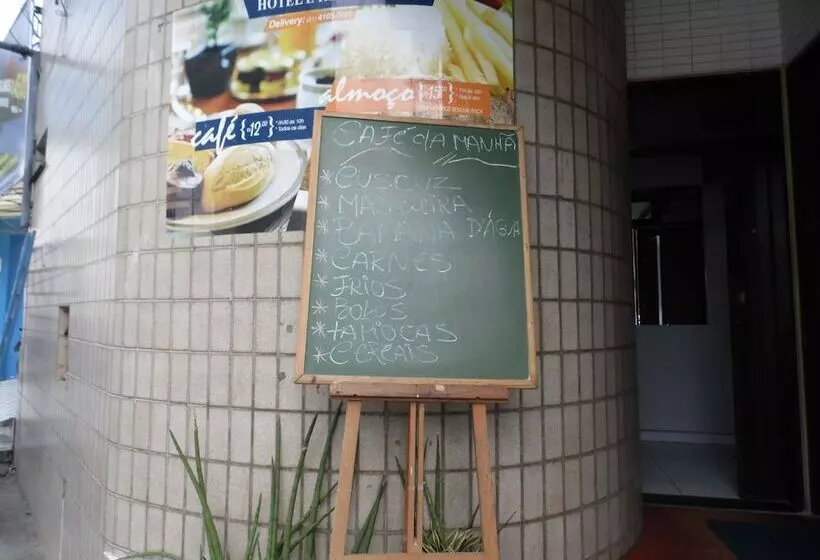 HOTEL E
Delivery: (81) 4105-
almoço {R$15,00}
café {R$12,00}
* Todos os dias
CAFÉ dA MANHÃ
* CUSCUZ
* MACAXEIRA
* BANANA D'ÁGUA
* CARNES
* FRIOS
* BOLOS
* tAPIOCAS
* CEREAIS